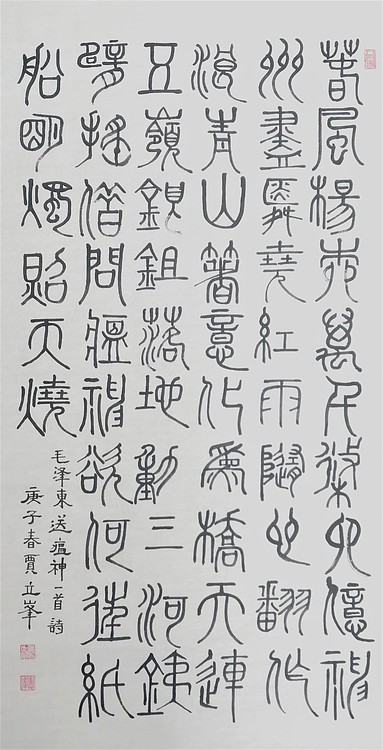 春風楊柳萬千條六億神
州盡舜堯紅雨隨心翻作
浪青山箸意化為橋天連
五嶺銀鉏落地動三河銕
臂搖借問瘟神欲何往紙
船明燭照天燒
毛澤東送瘟神一首詩
庚子春賈立峯